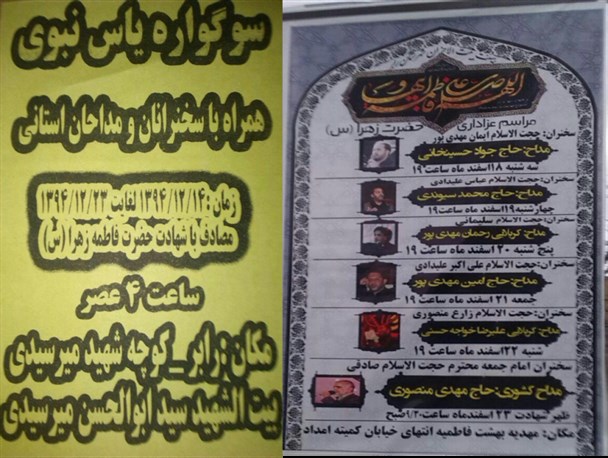 سوگواره یاس نبوی
همراه با سخنرانان و مداحان استانی
زمان : ۱۳۹۴/۱۲/۱۴ لغایت ۱۳۹۴/۱۲/۲۳
مصادف با شهادت حضرت فاطمه زهرا (س)
ساعت ۴ عصر
مکان : رابر_کوچه شهید میرسیدی
بیت الشهید سید ابوالحسن میرسیدی
مراسم عزاداری
حضرت زهرا (س)
سخنران: حجت الاسلام ایمان مهدی پور
مداح: حاج جواد حسینخانی
سه شنبه ۱۸ اسفند ماه ساعت ۱۹
سخنران: حجت الاسلام عباس علیدادی
مداح: حاج محمد سیوندی
چهارشنبه ۱۹ اسفند ماه ساعت ۱۹
سخنران: حجت الاسلام سلیمانی
مداح: کربلایی رحمان مهدی پور
پنج شنبه ۲۰ اسفند ماه ساعت ۱۹
سخنران: حجت الاسلام علی اکبر علیدادی
مداح: حاج امین مهدی پور
جمعه ۲۱ اسفند ماه ساعت ۱۹
سخنران: حجت الاسلام زارع منصوری
مداح: کربلایی علیرضا خواجه حسنی
شنبه ۲۲ اسفند ماه ساعت ۱۹
سخنران امام جمعه محترم حجت الاسلام صادقی
مداح کشوری: حاج مهدی منصوری
ظهر شهادت ۲۳ اسفندماه ساعت ۹/۳۰ صبح
مکان: مهدیه بهشت فاطمیه انتهای خیابان کمیته امداد